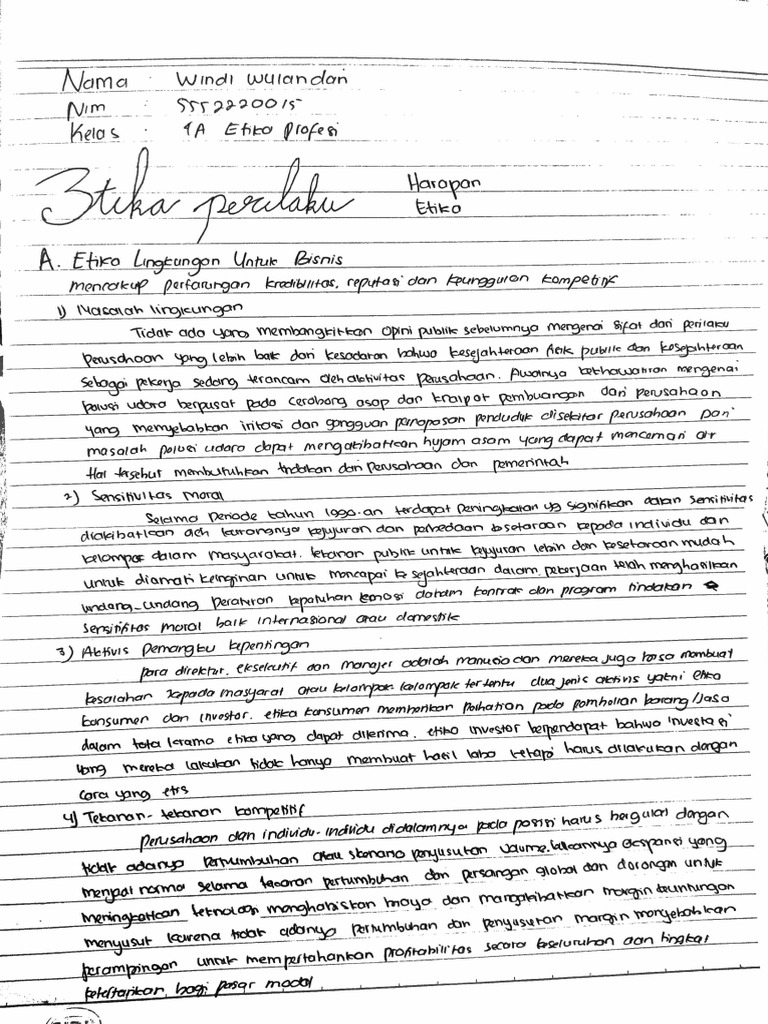 Nama : Windi Wulandari
Nim : 5552220015
Kelas : 4A Etika Profesi
Etika perilaku
Harapan
Etika
A. Etika Lingkungan Untuk Bisnis
mencakup pertarungan kredibilitas, reputasi dan keunggulan kompetitif
1) Masalah lingkungan
Tidak ada yang membangkitkan opini publik sebelumnya mengenai sifat dari perilaku
perusahaan yang lebih baik dari kesadaran bahwa kesejahteraan fisik publik dan kesejahteraan
sebagai pekerja sedang terancam oleh aktivitas perusahaan. Awalnya kekhawatiran mengenai
polusi udara berpusat pada cerobong asap dan knalpot pembuangan dari perusahaan
yang menyebabkan iritasi dan gangguan pernapasan penduduk disekitar perusahaan Dari
masalah polusi udara dapat mengakibatkan hujam asam yang dapat mencemari air
Hal tersebut membutuhkan tindakan dari perusahaan dan pemerintah
2) Sensitivitas moral
Selama periode tahun 1990-an terdapat peningkatan yg signifikan dalam sensitivitas
diakibatkan oleh kurangnya kejujuran dan perbedaan kesetaraan kepada individu dan
kelompok dalam masyarakat. tekanan publik untuk kejujuran lebih dan kesetaraan mudah
untuk diamati keinginan untuk mencapai kesejahteraan dalam pekerjaan telah menghasilkan
undang-undang peraturan kepatuhan dalam kontrak dan program tindakan
sensitifitas moral baik internasional atau domestik
3) Aktivis pemangku kepentingan
para direktur, eksekutif dan manajer adalah manusia dan mereka juga bisa membuat
kesalahan kepada masyarat atau kelompok-kelompok tertentu dua jenis aktivis yakni etika
konsumen dan investor. etika konsumen memberikan perhatian pada pembelian barang/jasa
dalam tata krama etika yang dapat diterima. etika investor berpendapat bahwa investasi
yang mereka lakukan tidak hanya membuat hasil laba tetapi harus dilakukan dengan
cara yang etis
4) Tekanan-tekanan kompetitif
perusahaan dan individu-individu didalamnya pada posisi harus bergulat dengan
tidak adanya pertumbuhan atau skenario penyusutan volume, ekspansi yang
menjadi norma selama tekanan pertumbuhan dan persangan global dan dorongan untuk
meningkatkan teknologi menghabiskan biaya dan mengakibatkan margin keuntungan
menyusut karena tidak adanya pertumbuhan dan penyusutan margin menyebabkan
perampingan untuk mempertahankan profitabilitas secara keseluruhan dan tingkat
ketertarikan bagi pasar modal